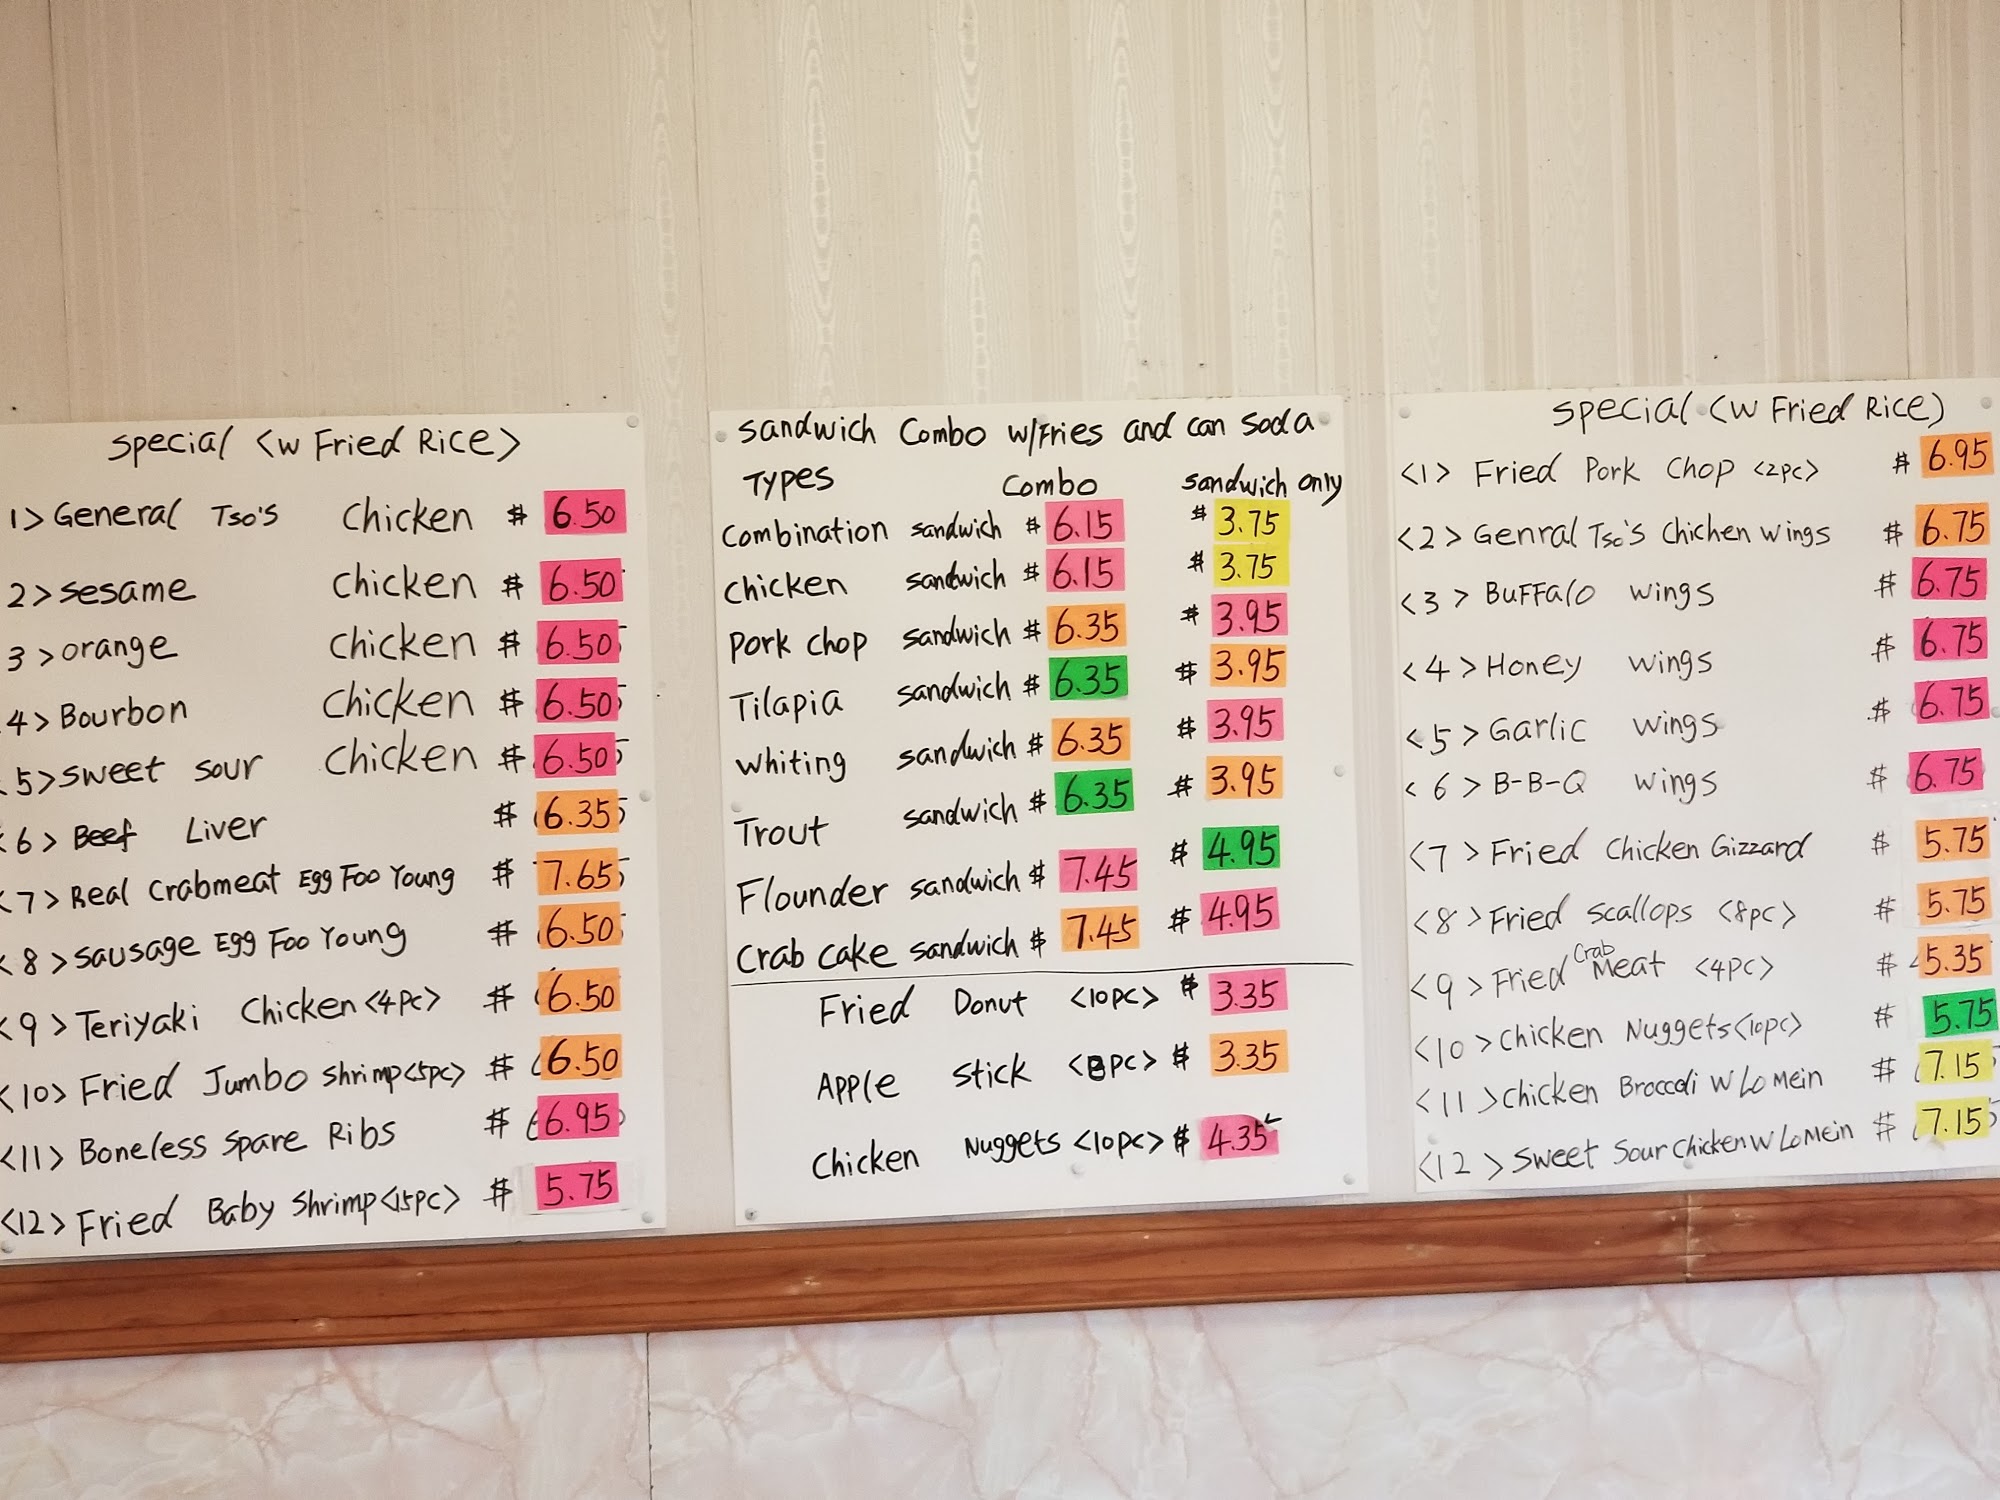 Special <w Fried Rice>
1> General Tso's Chicken $ 6.50
2> Sesame Chicken $ 6.50
3> orange Chicken $ 6.50
4> Bourbon Chicken $ 6.50
5> Sweet sour Chicken $ 6.50
<6> Beef Liver $ 6.35
<7> Real Crabmeat Egg Foo Young $ 7.65
<8> Sausage Egg Foo Young $ 6.50
<9> Teriyaki Chicken <4pc> $ 6.50
<10> Fried Jumbo Shrimp <5pc> $ 6.50
<11> Boneless Spare Ribs $ 6.95
<12> Fried Baby Shrimp <15pc> $ 5.75
Sandwich Combo w/Fries and can Soda
Types Combo Sandwich only
Combination sandwich $ 6.15 $ 3.75
Chicken sandwich $ 6.15 $ 3.75
Pork chop sandwich $ 6.35 $ 3.95
Tilapia sandwich $ 6.35 $ 3.95
Whiting sandwich $ 6.35 $ 3.95
Trout sandwich $ 6.35 $ 3.95
Flounder sandwich $ 7.45 $ 4.95
Crab Cake sandwich $ 7.45 $ 4.95
Fried Donut <10pc> $ 3.35
Apple Stick <8pc> $ 3.35
Chicken Nuggets <10pc> $ 4.35
Special (w Fried Rice)
<1> Fried Pork Chop <2pc> $ 6.95
<2> Genral Tso's Chichen wings $ 6.75
<3> Buffalo wings $ 6.75
<4> Honey wings $ 6.75
<5> Garlic wings $ 6.75
<6> B-B-Q wings $ 6.75
<7> Fried Chicken Gizzard $ 5.75
<8> Fried Scallops <8pc> $ 5.75
<9> Fried Crab Meat <4pc> $ 5.35
<10> Chicken Nuggets <10pc> $ 5.75
<11> Chicken Broccoli w Lo Mein $ 7.15
<12> Sweet Sour Chicken w Lo Mein $ 7.15